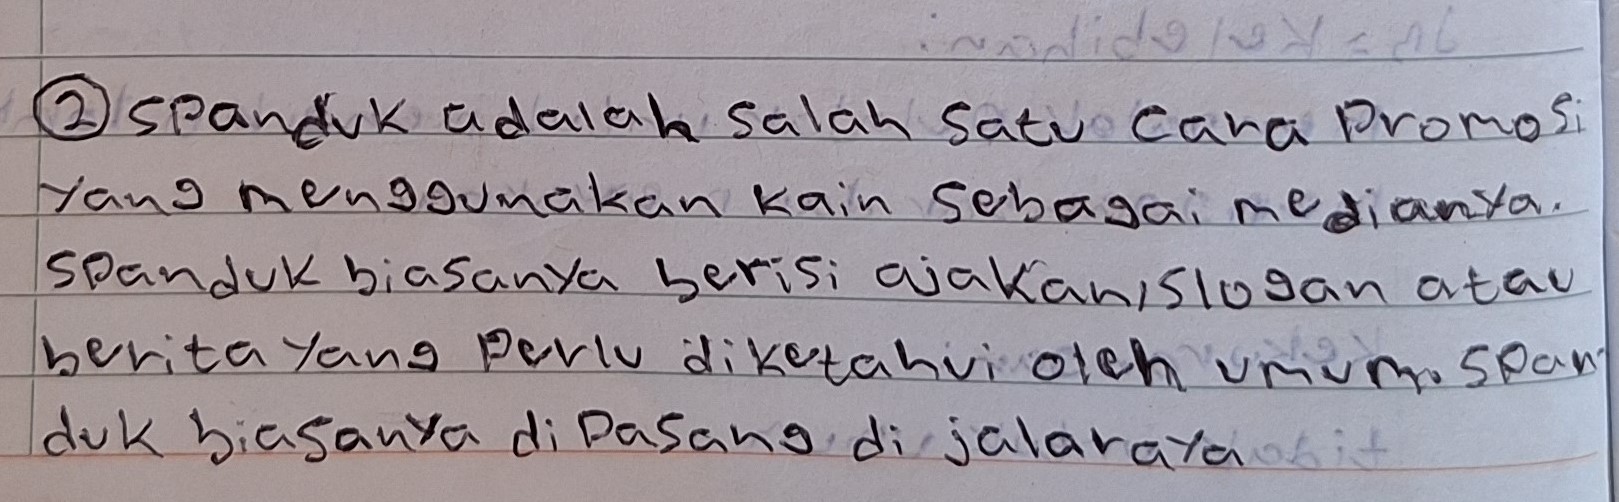 ② Spanduk adalah salah satu cara Promosi
Yang menggunakan kain sebagai medianya.
Spanduk biasanya berisi ajakan, slogan atau
berita Yang Perlu diketahui oleh umum. Span-
duk biasanya di Pasang di jalaraya